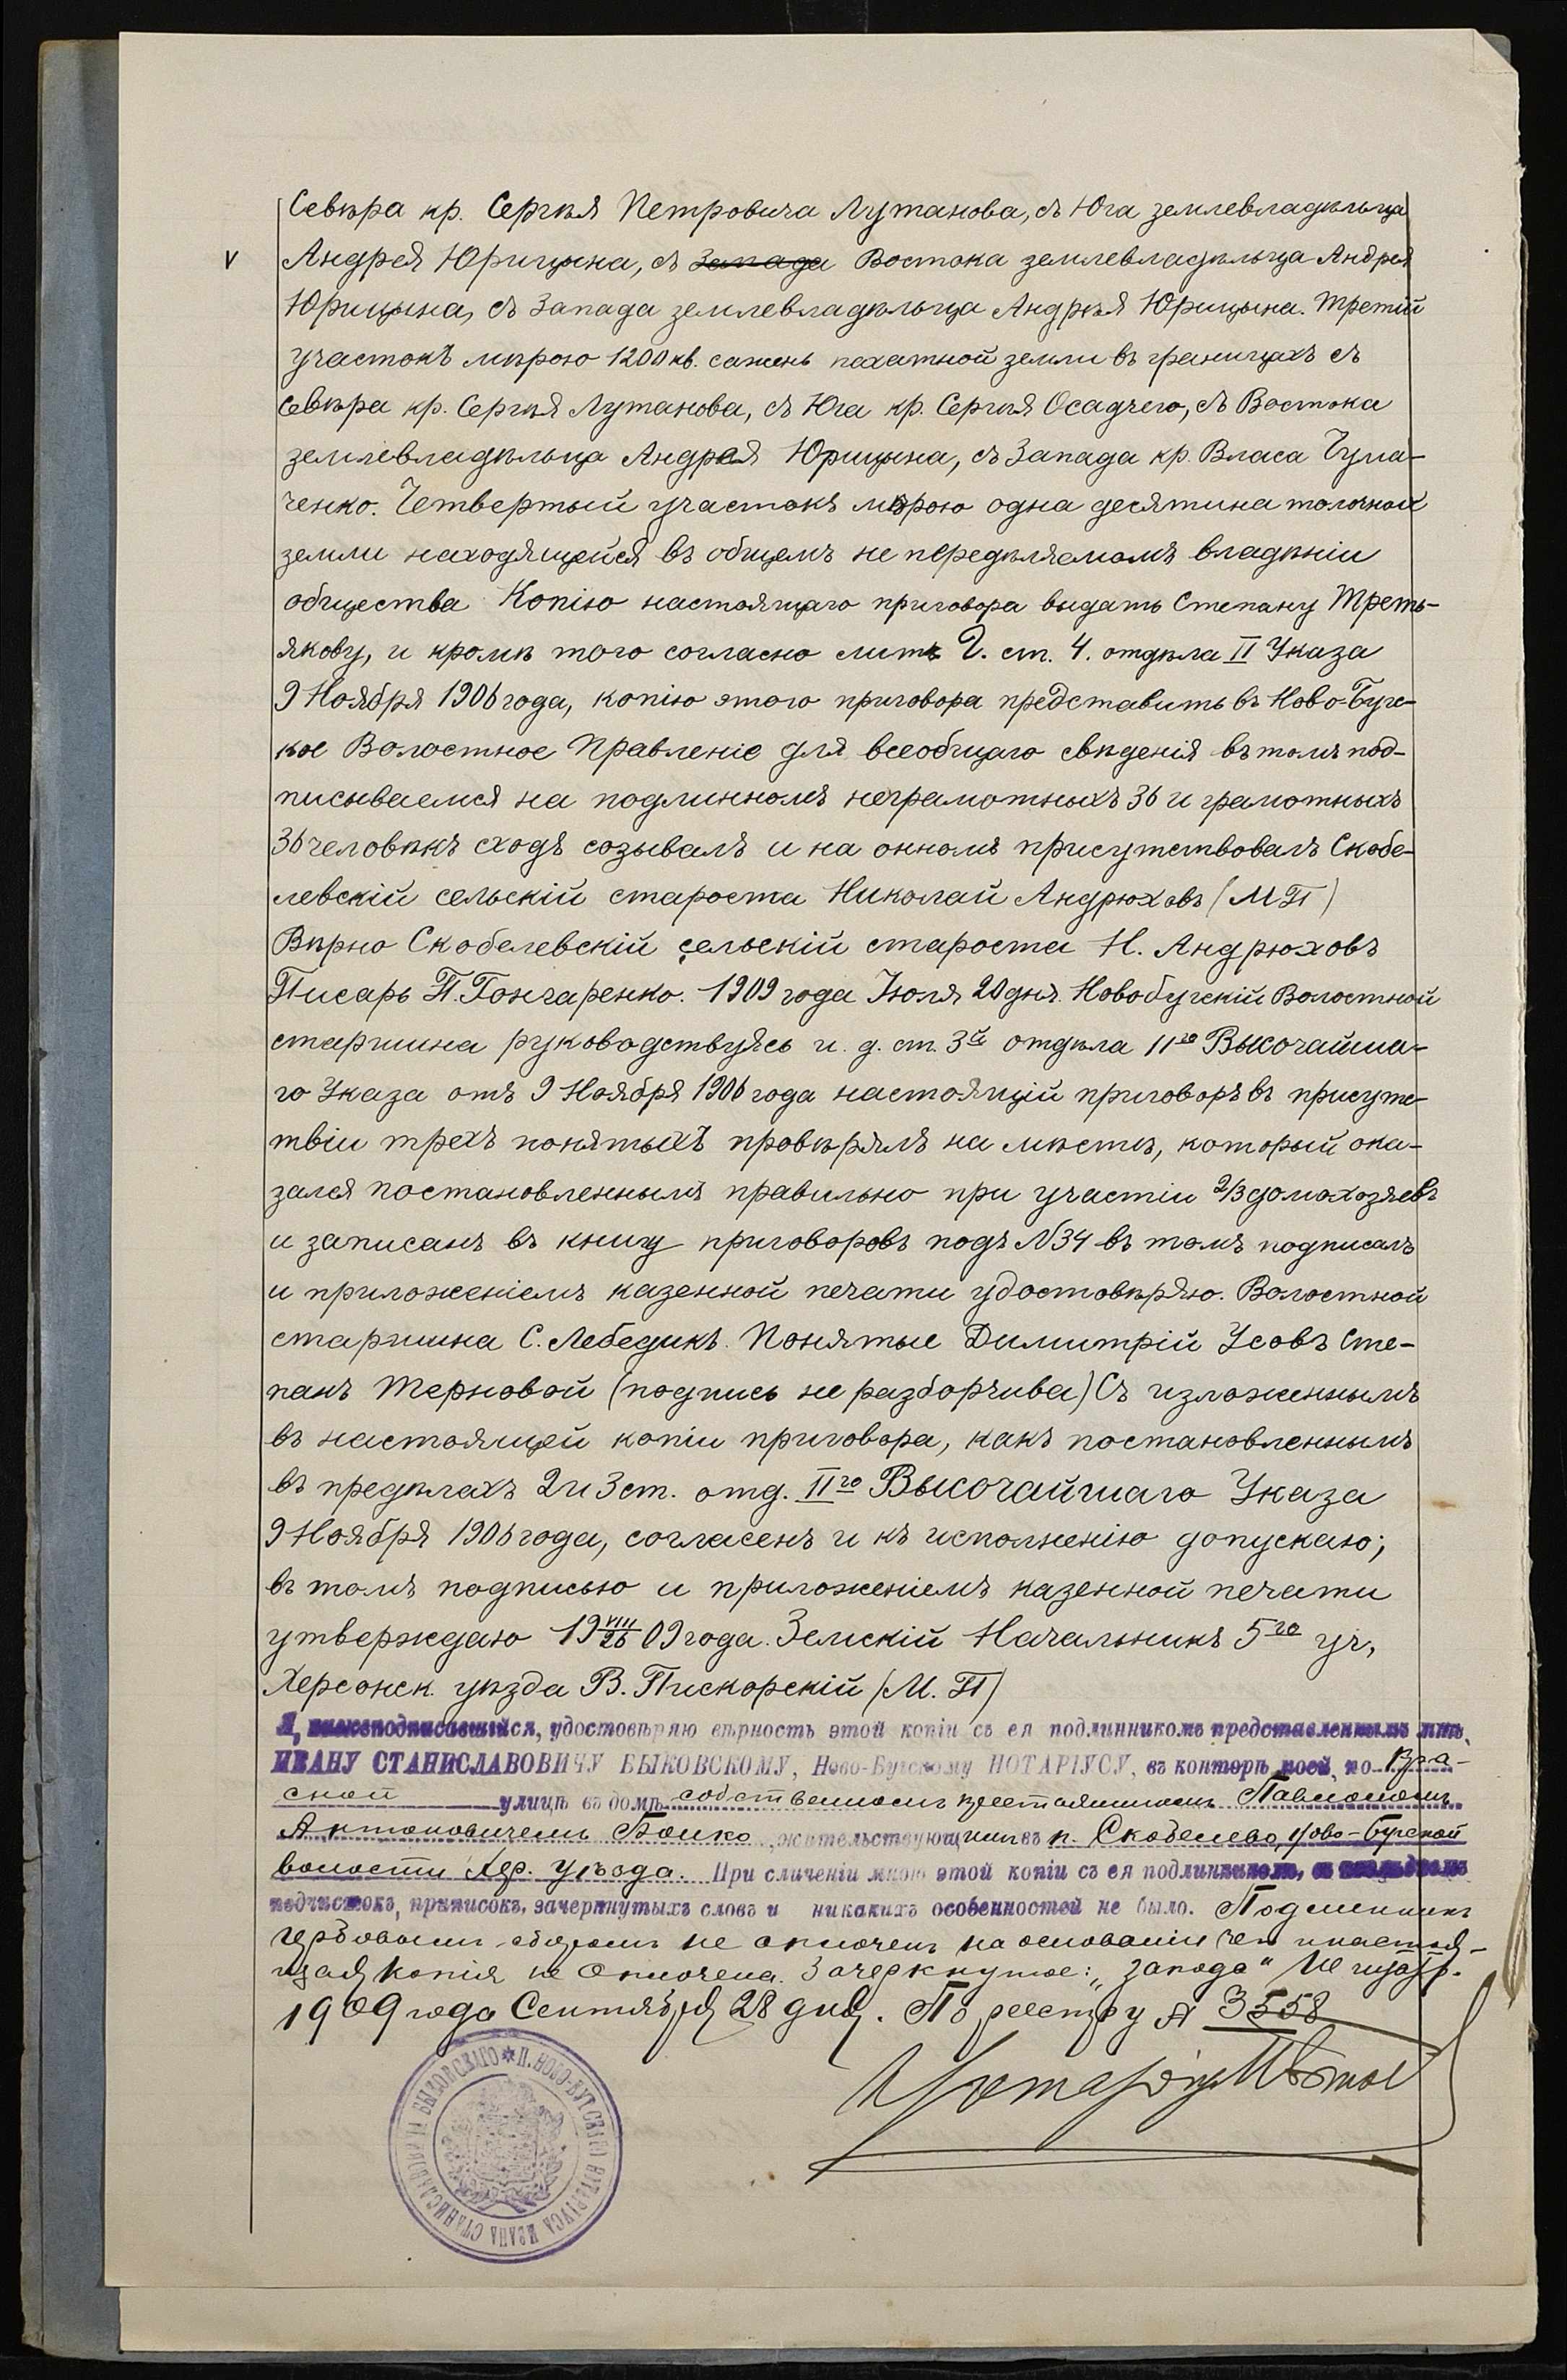 Сѣвѣра кр. Сергѣя Петровича Лутанова, съ Юга землевладѣльца
V Андрея Юрицына, съ Запада Востока землевладѣльца Андрея
Юрицына, съ Запада землевладѣльца Андрѣя Юрицына. Третій
участокъ мѣрою 1200 кв. сажень пахатной земли въ границахъ съ
Сѣвѣра кр. Сергѣя Лутанова, съ Юга кр. Сергѣя Осадчего, съ Востока
землевладѣльца Андрея Юрицына, съ Запада кр. Власа Чума-
ченко. Четвертый участокъ мѣрою одна десятина толочной
земли находящейся въ общемъ не передѣляемомъ владѣніи
общества Копію настоящаго приговора выдать Степану Треть-
якову, и кромѣ того согласно литѣ Д. ст. 4. отдѣла II Указа
9 Ноября 1906 года, копію этого приговора представить въ Ново-Бугс-
кое Волостное Правленіе для всеобщаго свѣденія въ томъ под-
писываемся на подлинномъ неграмотныхъ 36 и грамотныхъ
36 человѣкъ сходъ созывалъ и на онномъ присутствовалъ Скобе-
левскій сельскій староста Николай Андрюховъ (М П)
Вѣрно Скобелевскій сельскій староста Н. Андрюховъ
Писарь П. Гончаренко. 1909 года Іюля 20 дня. Новобугскій Волостной
старшина руководствуясь и. д. ст. 3й отдѣла 11го Высочайша-
го Указа отъ 9 Ноября 1906 года настоящій приговоръ въ присутс-
твіи трехъ понятыхъ провѣрялъ на мѣстѣ, который ока-
зался постановленнымъ правильно при участіи 2/3 домохозяевъ
и записанъ въ книгу приговоровъ подъ N34 въ томъ подписалъ
и приложеніемъ казенной печати удостовѣряю. Волостной
старшина С. Лебедикъ. Понятые Димитрій Усовъ Сте-
панъ Терновой (подпись не разборчива) Съ изложеннымъ
въ настоящей копіи приговора, какъ постановленнымъ
въ предѣлахъ 2 и 3 ст. отд. IIго Высочайшаго Указа
9 Ноября 1906 года, согласенъ и къ исполненію допускаю;
въ томъ подписью и приложеніемъ казенной печати
утверждаю 19 VIII/26 09 года. Земскій Начальникъ 5го уч,
Херсонск. уѣзда В. Пискорскій (М. П)
Я, нижеподписавшійся, удостовѣряю вѣрность этой копіи съ ея подлинникомъ представленнымъ мнѣ,
ИВАНУ СТАНИСЛАВОВИЧУ БЫКОВСКОМУ, Ново-Бугскому НОТАРІУСУ, въ конторѣ моей, по Кра-
сной улицѣ въ домѣ собственномъ крестьяниномъ Павломъ
Антоновичемъ Бойко, жительствующимъ въ п. Скобелево, Ново-Бугской
волости Хер. Уѣзда. При сличеніи мною этой копіи съ ея подлинникомъ, въ послѣднемъ
подчистокъ, приписокъ, зачеркнутыхъ словъ и никакихъ особенностей не было. Подлинникъ
гербовымъ сборомъ не оплоченъ на основаніи чего и настоя-
щая копія не оплочена. Зачеркнутое: „запада"
1909 года Сентября 28 дня. По реестру № 3558
Нотаріусъ
П. НОВО-БУГСКАГО НОТАРІУСА ИВАНА СТАНИСЛАВОВИЧА БЫКОВСКАГО